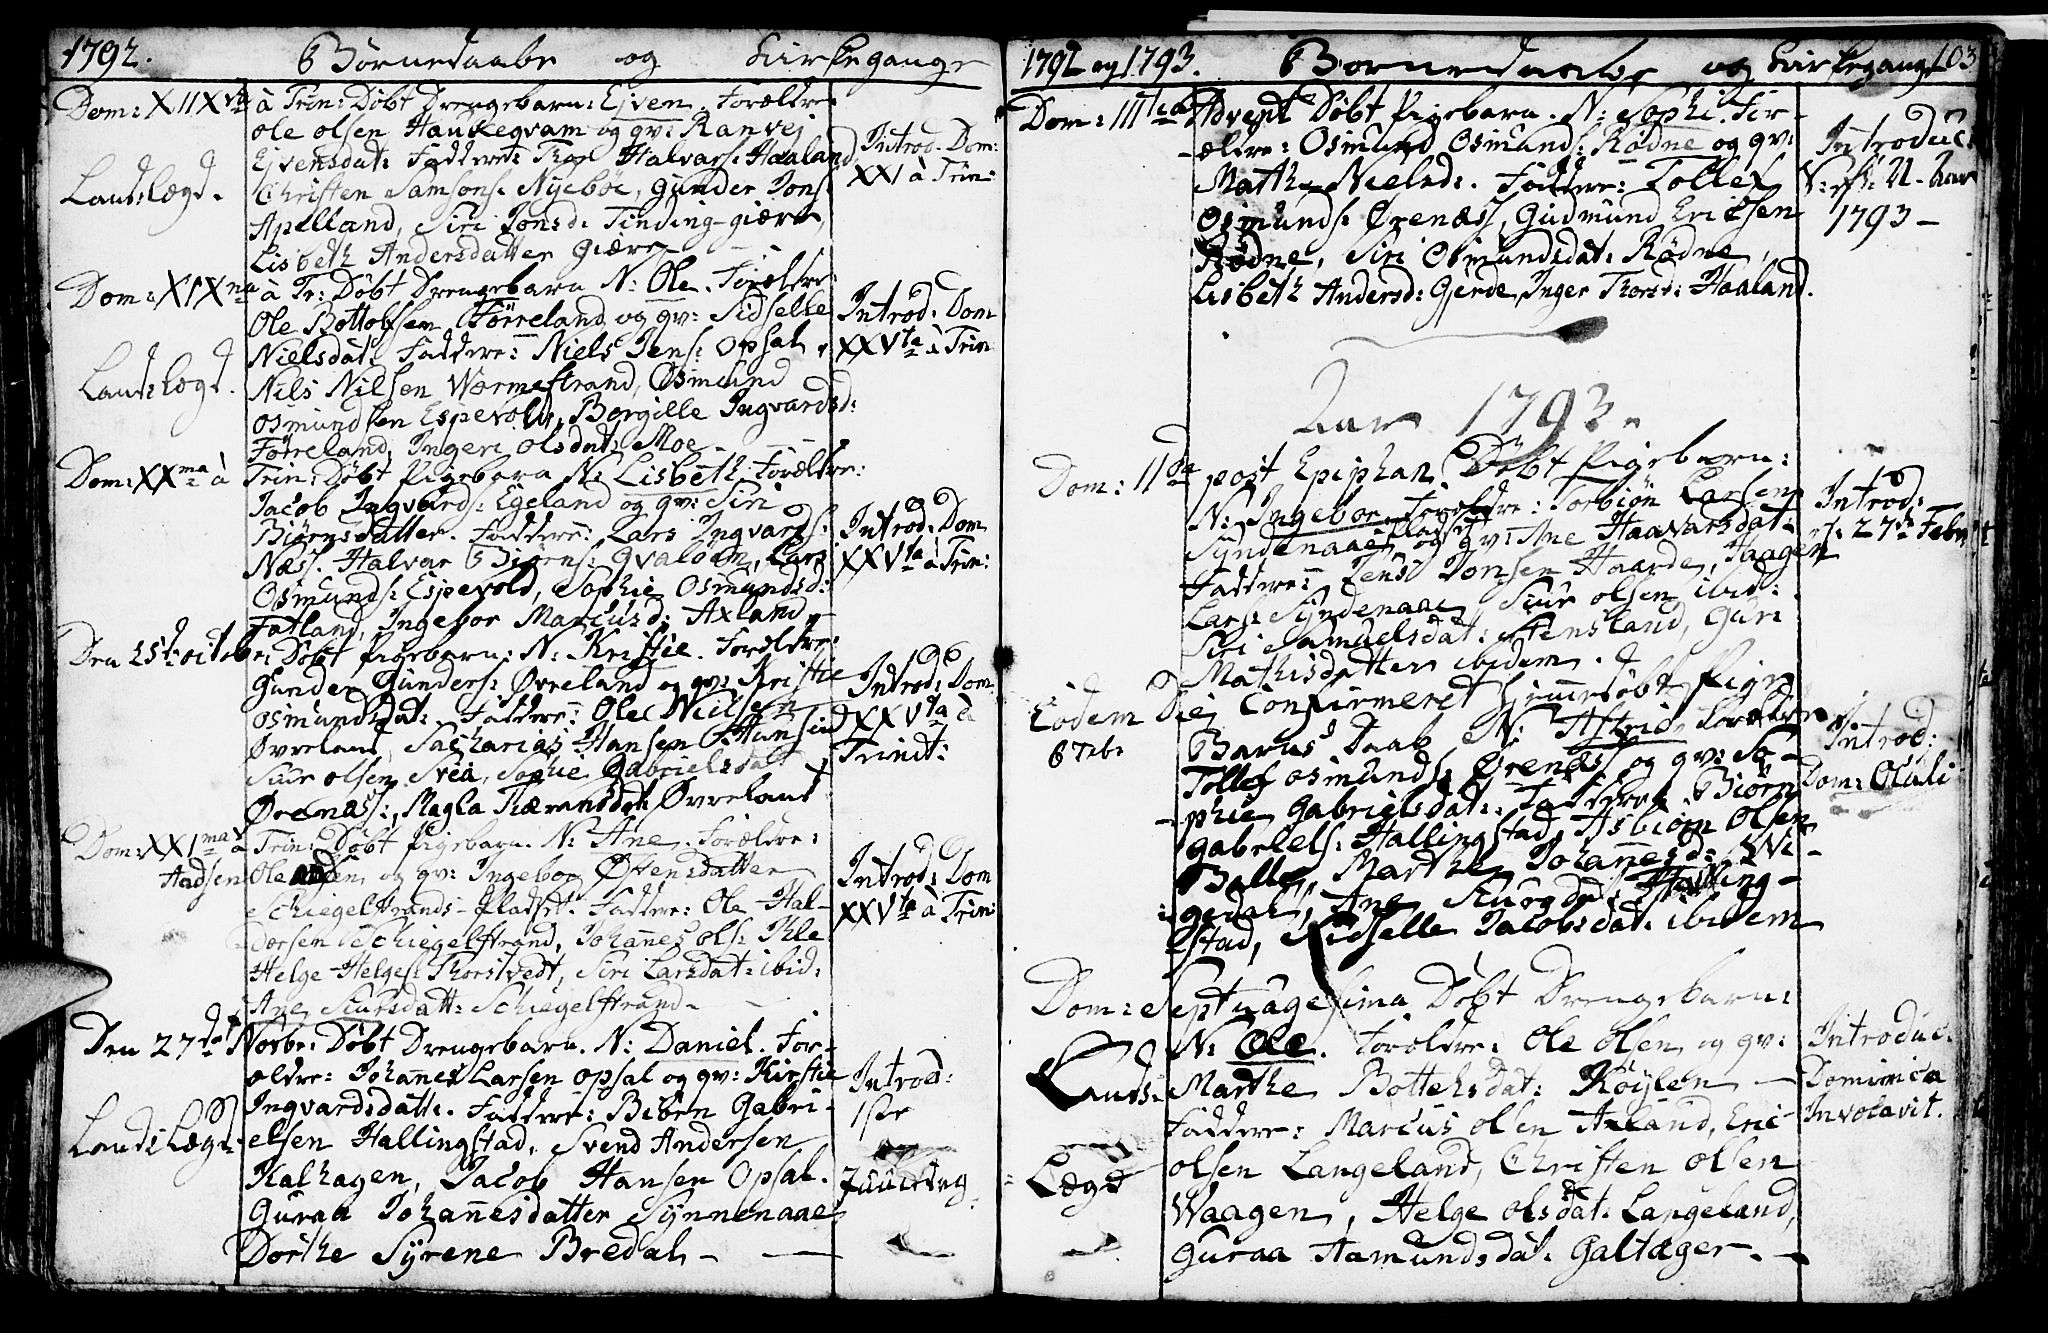 1792. Börnedaabe og Kirkegange
Dom: XIIX à Trin: Döbt Drengebarn: Ejven. Forældre
Ole Olsen Haukeqvam og qv: Ranvej
Ejvensdat: Faddere: Thor Halvars: Haaland
Christen Samsons: Nyeböe, Gunder Jons:
Apelland, Siri Jonsd: Tinding-giære
Lisbeth Andersdatter Giære
Landslægd.
Introd. Dom:
XXI à Trin:
Dom: XIXna à Tr: Döbt Drengebarn N: Ole. Forældre
Ole Bottolfsen Förreland og qv: Sidselle
Nielsdat: Faddere: Niels Jens: Opsal,
Nils Nilsen Wormestrand, Osmund
Osmundsen Espevold, Borgille Ingvardsd:
Förreland, Ingeri Olsdat: Moe
Landslægd.
Introd: Dom
XXVta à Trin
Dom: XXma à Trin: Döbt Pigebarn N: Lisbeth. Forældre:
Jacob Ingvards: Egeland og qv: Siri
Biörnsdatter. Faddere: Lars Ingvards:
Næss. Halvar Biörns: Qvaloen, Lars
Osmunds: Espevold, Sophie Osmundsd:
Fatland, Ingebor Marcusd: Axland
Introd: Dom
XXVta à Trin:
Den 25de octobr: Döbt Pigebarn: N: Kristie. Forældre:
Gunder Gunders: Övreland og qv: Kristie
Osmundsdat: Faddere: Ole Nilsen
Övreland, Sacharias Hansen
Siur Olsen Svea, Sophie Gabrielsdatt
Örenæss:, Magla Øvreland
Introd: Dom
XXVta à
Trinit:
Dom: XXIma à Trin: Döbt Pigebarn N: Ane. Forældre:
Aadsen Ole og qv: Ingebor Östensdatter
Schiegelstrands-Pladset. Faddere: Ole Hal-
dorsen Schiegelstrand, Johannes Ols: Ihle
Helge Helges: Thorstvedt, Siri Larsdat: ibid:
Ane Siursdatt: Schiegelstrand
Introd: Dom
XXVta à Trin:
Den 27de Novbr: Döbt Drengebarn. N: Daniel. For-
ældre: Johannes Larsen Opsal og qv: Kirstie
Ingvardsdatt: Faddere: Biören Gabri-
elsen Hallingstad, Svend Andersen
Kalhagen, Jacob Hansen Opsal.
Guraa Johannesdatter Synnenaae
Dorthe Syrene Bredal
Lands Lægd
Introd:
1ste
Juuledag
1792 og 1793. Börnedaabe og Kirkegang 103
Dom: IIItia Advent Döbt Pigebarn. N: Sophi. For-
ældre: Osmund Osmunds: Rödne og qv:
Marthe Nielsd: Faddere: Tollef
Osmunds: Örenæss, Gudmund Ericsen
Rödne, Siri Osmundsdat: Rödne,
Lisbeth Andersd: Gjerde, Inger Thorsd: Haaland.
Introduc:
1793
Aar 1793.
Dom: IIda post Epiphan. Döbt Pigebarn:
N: Ingebor. Forældre: Torbiön Larsen
Syndenaaes Pladset og qv: Ane Haavarsdat
Faddere: Jens Jonsen Haarde, Aagen
Lars: Syndenaaes, Siur Olsen ibid:
Siri Samuelsdat: Stensland, Guri
Mathisdatter ibidem.
Introd:
d: 27de Febr
Eodem Die Confirmeret Hjemmedöbt Pige
6 Febr
Barns Daab N: Astrid, Forældre
Tollef Osmunds: Örenæss og qv: So-
phie Gabrielsdat: Faddere: Biörn
Gabriels: Hallingstad, Asbiörn Olsen
Balle, Marthe Johannesd: Wi-
gedal, Ane Siursdat: Halling-
stad, Sidselle Jacobsdat: ibidem
Introd:
Dom: Oculi
Dom: Septuagesima Döbt Drengebarn:
N: Ole. Forældre: Ole Olsen og qv:
Marthe Bottelsdat: Röylen
Faddere: Marcus Olsen Axland, Eric
Olsen Langeland, Christen Olsen
Waagen, Helge Olsdat: Langeland,
Guraa Aamundsdat: Galtager.
Lands
Lægd
Introduc.
Dominica
Invocavit.